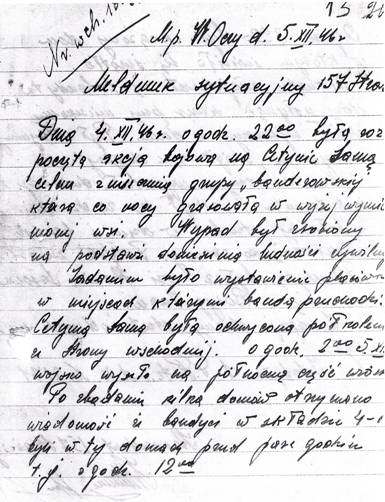 13
Nr. wch. 10
M.p. W. Oczy d. 5.XII.46r
Meldunek sytuacyjny 157 Stra
Dnia 4.XII.46r. o godz. 22⁰⁰ była roz
poczęta akcja bojowa na Cetynię Samą
celem zniszczenia grupy „banderowskiej
która co nocy grasowała w wyżej wymie
nionej wsi. Wypad był zrobiony
na podstawie doniesienia ludności cywilne
Zadaniem było wystawienie placówk
w miejscach którymi banda przechodzi.
Cetynia Sama była ochycona półkolem
ze strony wschodniej. o godz. 2⁰⁰ 5.XI
wojsko wyszło na północną część
Po zbadaniu kilka domów otrzymano
wiadomość że bandyci w składzie 4-
byli w ty domach przed parę godzin
t.j. o godz. 12⁰⁰